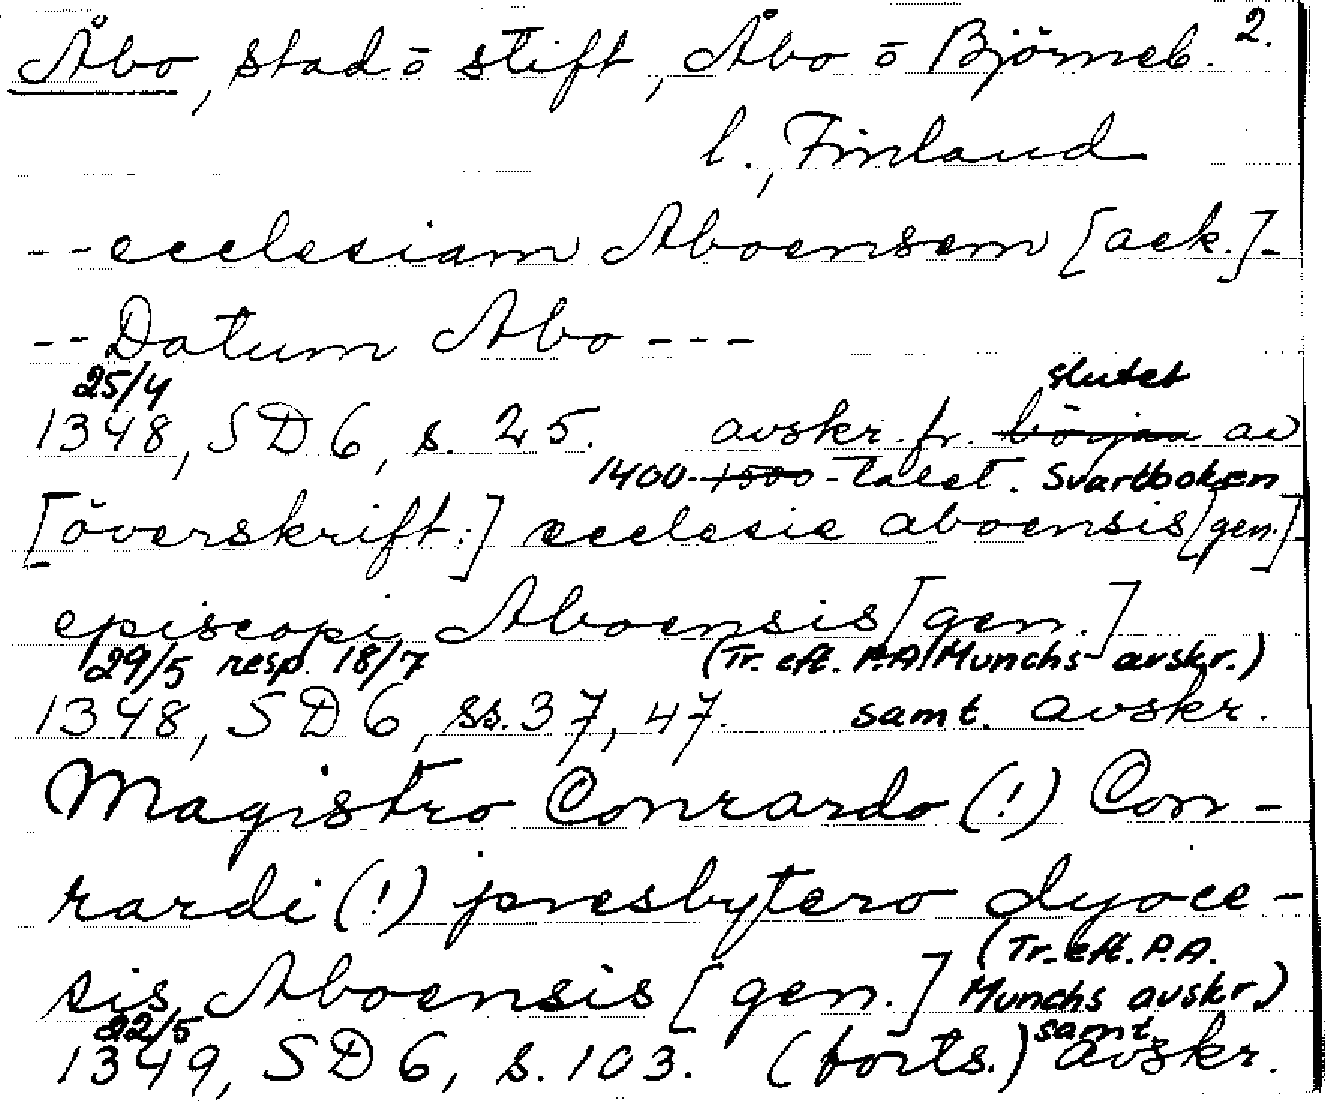 2.
Åbo, stad ō stift, Åbo ō Björneb.
l., Finland
--ecclesiam Aboensem [ack.]-
--Datum Abo ---
25/4 slutet
1348, SD 6, s. 25. avskr. fr. början av
1400-1500-talet. Svartboken
[överskrift:] ecclesie aboensis [gen.]
episcopi Aboensis [gen.]
29/5 resp. 18/7 (Tr. eft. P.A. Munchs avskr.)
1348, SD 6, ss. 37, 47. samt. avskr.
Magistro Conrardo (!) Con-
rardi (!) presbytero dyoce-
(Tr. eft. P.A.
sis Aboensis [gen.] Munchs avskr.)
22/5 samt
1349, SD 6, s. 103. (forts.) avskr.